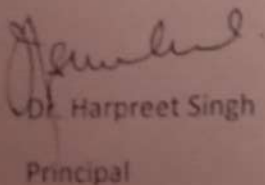 Dr. Harpreet Singh
Principal